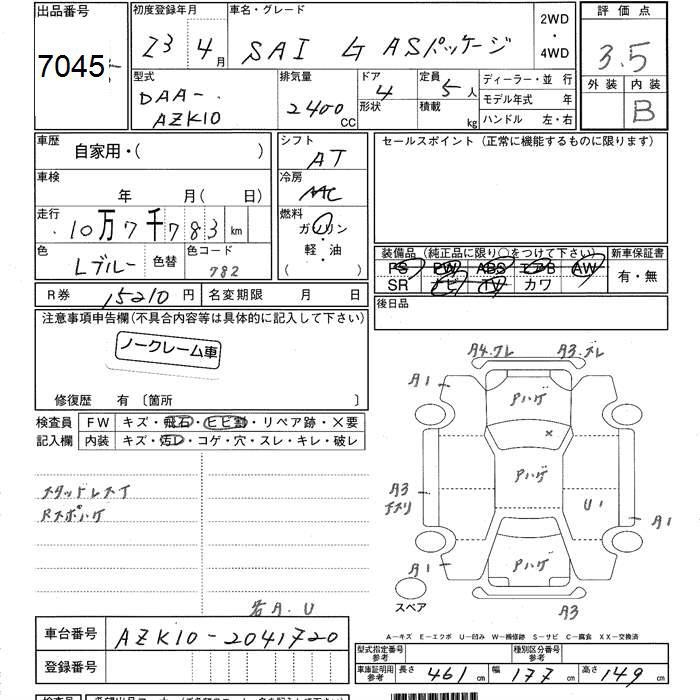 出品番号 初度登録年月 車名・グレード 2WD・4WD 評価点
7045 23 4月 SAI G ASパッケージ 3.5
型式 排気量 ドア 4 定員 5人 ディーラー・並行 外装 内装
DAA- 形状 積載 モデル年式 年 B
AZK10 2400CC kg ハンドル 左・右
車歴 自家用・( ) シフト AT セールスポイント (正常に機能するものに限ります)
車検 年 月(日) 冷房
走行 10万7千783km 燃料 ガソリン・軽・油 ( )
色 Lブルー 色替 色コード 782
装備品 (純正品に限り○をつけて下さい) 新車保証書
PS PW ABS エアB AW 有・無
SR ナビ TV カワ
R券 15210円 名変期限 月 日 後日品
注意事項申告欄(不具合内容等は具体的に記入して下さい)
ノークレーム車
修復歴 有 〔箇所 〕
検査員 FW キズ・飛石・ヒビ割・リペア跡・×要
記入欄 内装 キズ・汚レ・コゲ・穴・スレ・キレ・破レ
スタッドレスT
Rスポハゲ
若A.U
A4.ズレ A3.ズレ
A1 Pハゲ
×
Pハゲ
A3 U1 A1
A1 Pハゲ
スペア A3
A-キズ E-エクボ U-凹み W-補修跡 S-サビ C-腐食 XX-交換済
車台番号 AZK10-2041720
型式指定番号 参考 種別区分番号 参考
登録番号 車庫証明用 参考 長さ 461cm 幅 177cm 高さ 149cm